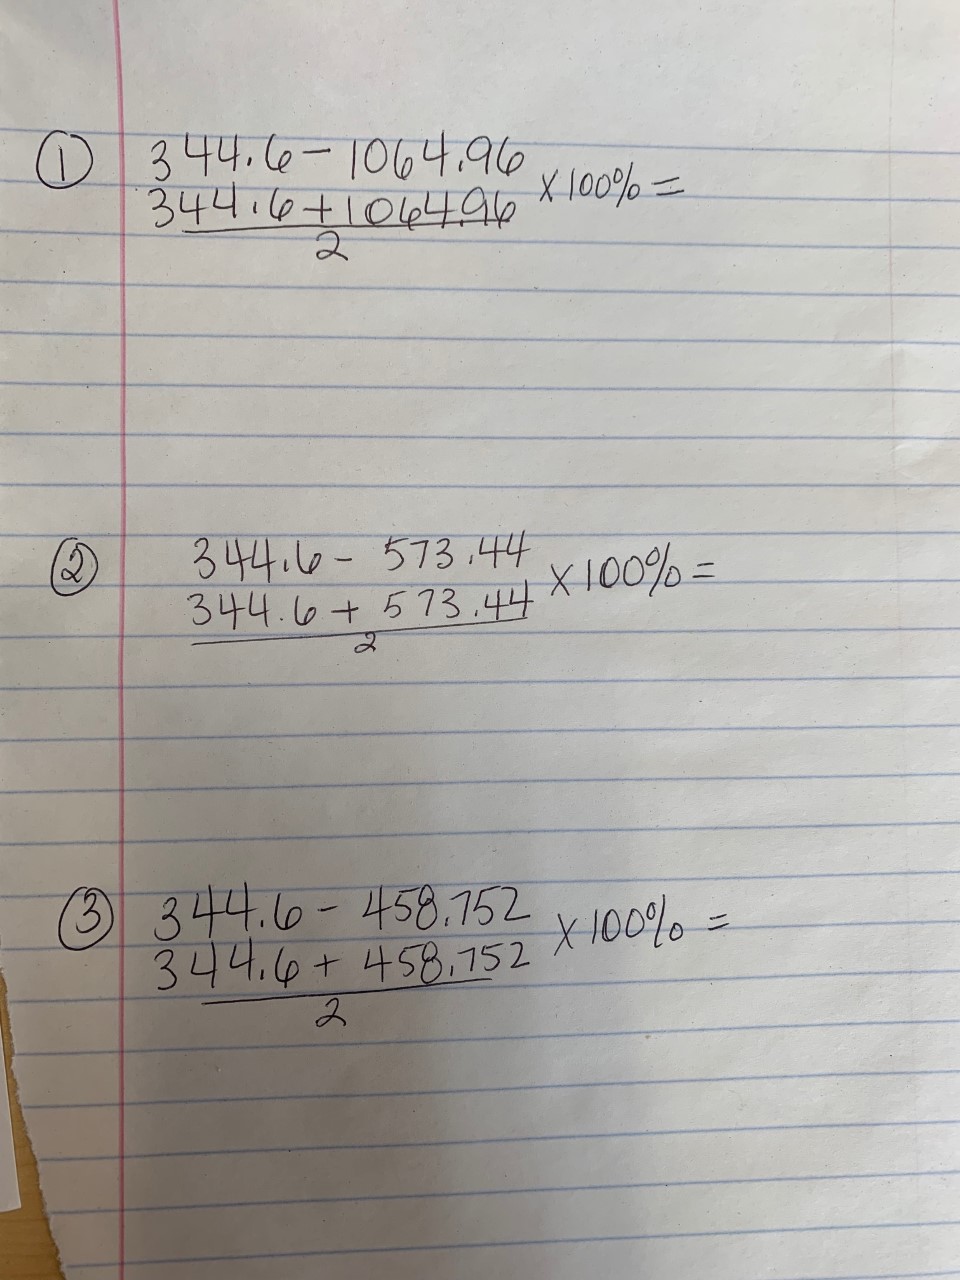 ① 344.6 - 1064.96
344.6 + 1064.96 x 100% =
2
② 344.6 - 573.44
344.6 + 573.44 x 100% =
2
③ 344.6 - 458.752
344.6 + 458.752 x 100% =
2